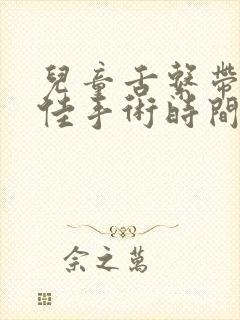 兒童舌繫帶
佳手術時間
余之萬